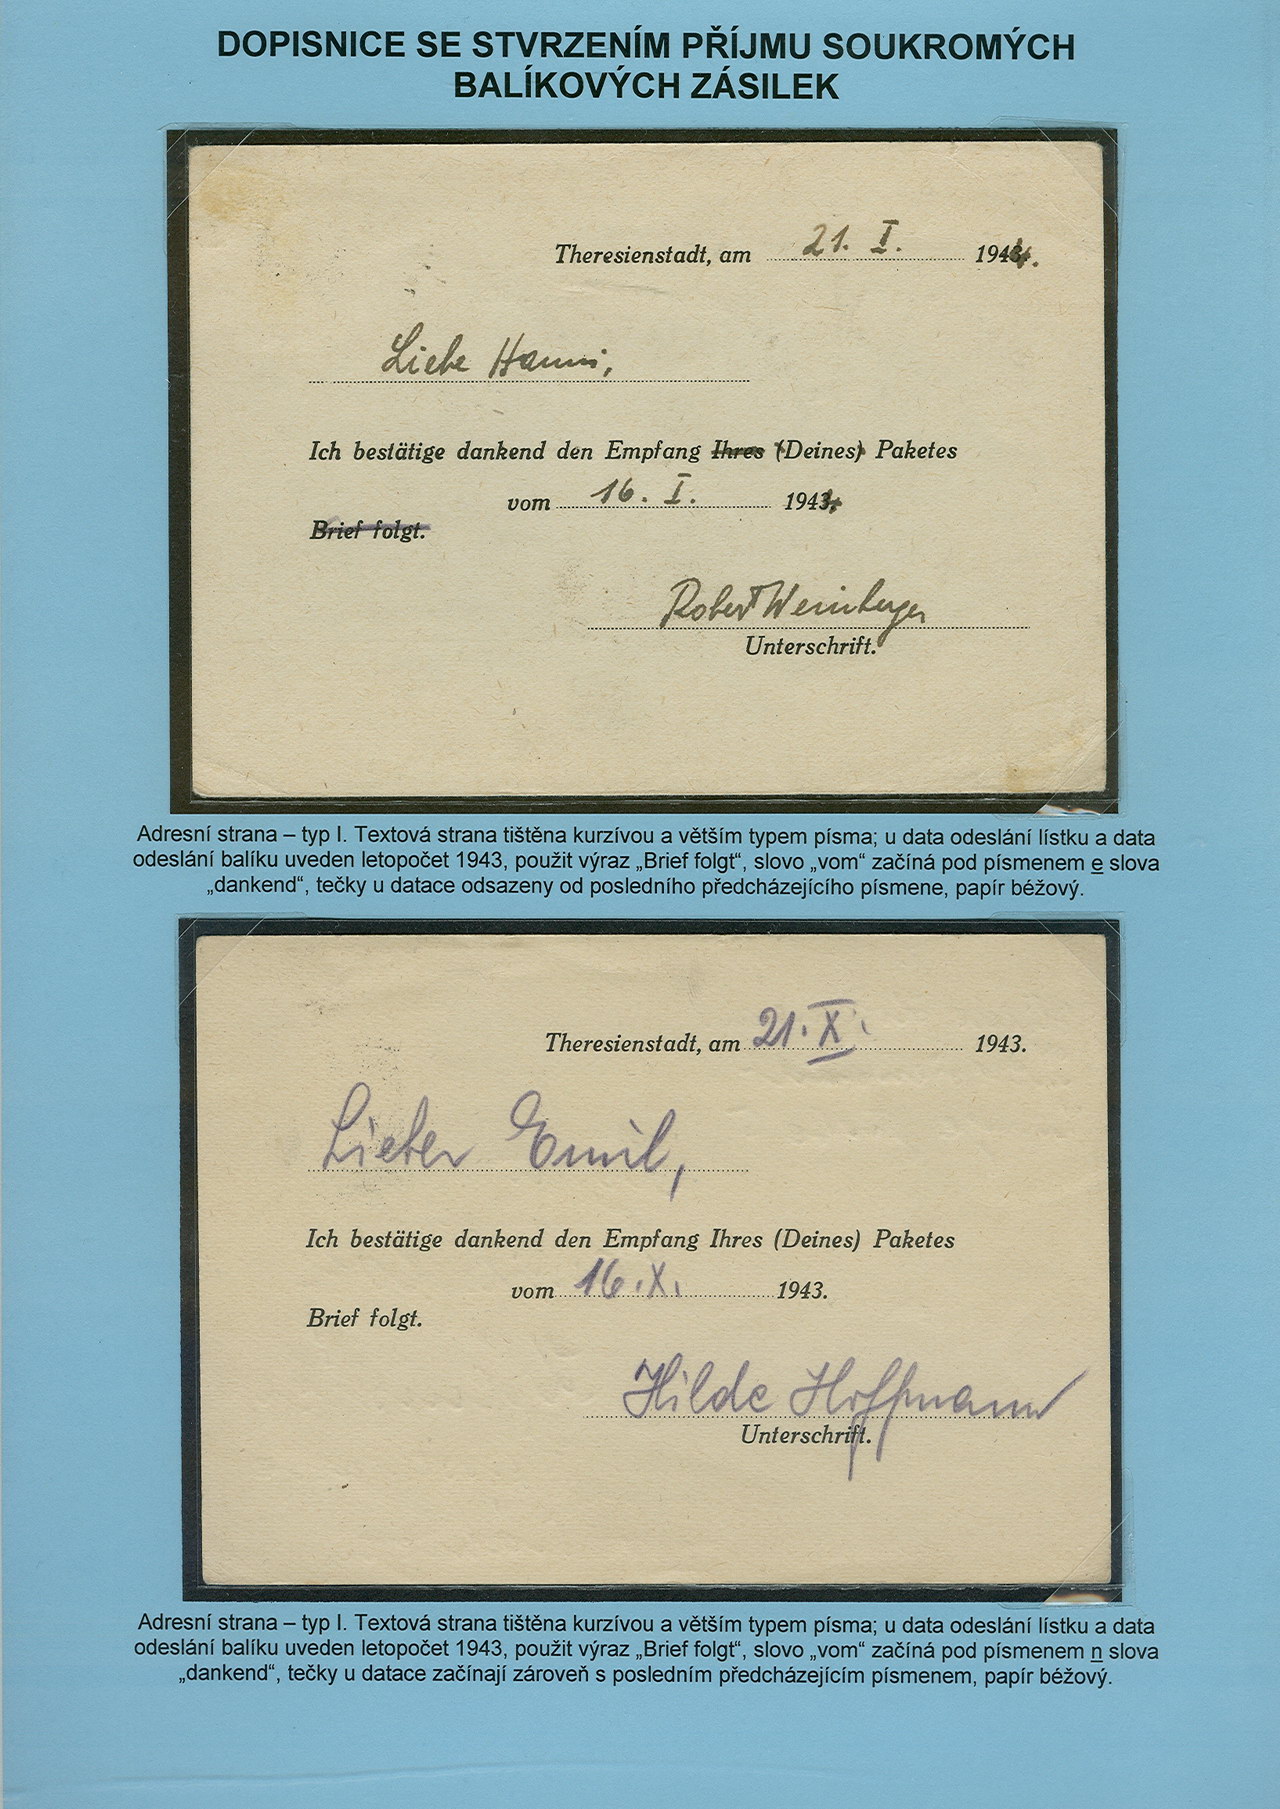 DOPISNICE SE STVRZENÍM PŘÍJMU SOUKROMÝCH
BALÍKOVÝCH ZÁSILEK
Theresienstadt, am 21. I. 1944.
Liebe Hanni,
Ich bestätige dankend den Empfang Ihres (Deines) Paketes
vom 16. I. 1944
Brief folgt.
Robert Weinberger
Unterschrift.
Adresní strana – typ I. Textová strana tištěna kurzívou a větším typem písma; u data odeslání lístku a data
odeslání balíku uveden letopočet 1943, použit výraz „Brief folgt“, slovo „vom“ začíná pod písmenem e slova
„dankend“, tečky u datace odsazeny od posledního předcházejícího písmene, papír béžový.
Theresienstadt, am 21. X. 1943.
Lieber Emil,
Ich bestätige dankend den Empfang Ihres (Deines) Paketes
vom 16. X. 1943.
Brief folgt.
Hilde Hoffmann
Unterschrift.
Adresní strana – typ I. Textová strana tištěna kurzívou a větším typem písma; u data odeslání lístku a data
odeslání balíku uveden letopočet 1943, použit výraz „Brief folgt“, slovo „vom“ začíná pod písmenem n slova
„dankend“, tečky u datace začínají zároveň s posledním předcházejícím písmenem, papír béžový.